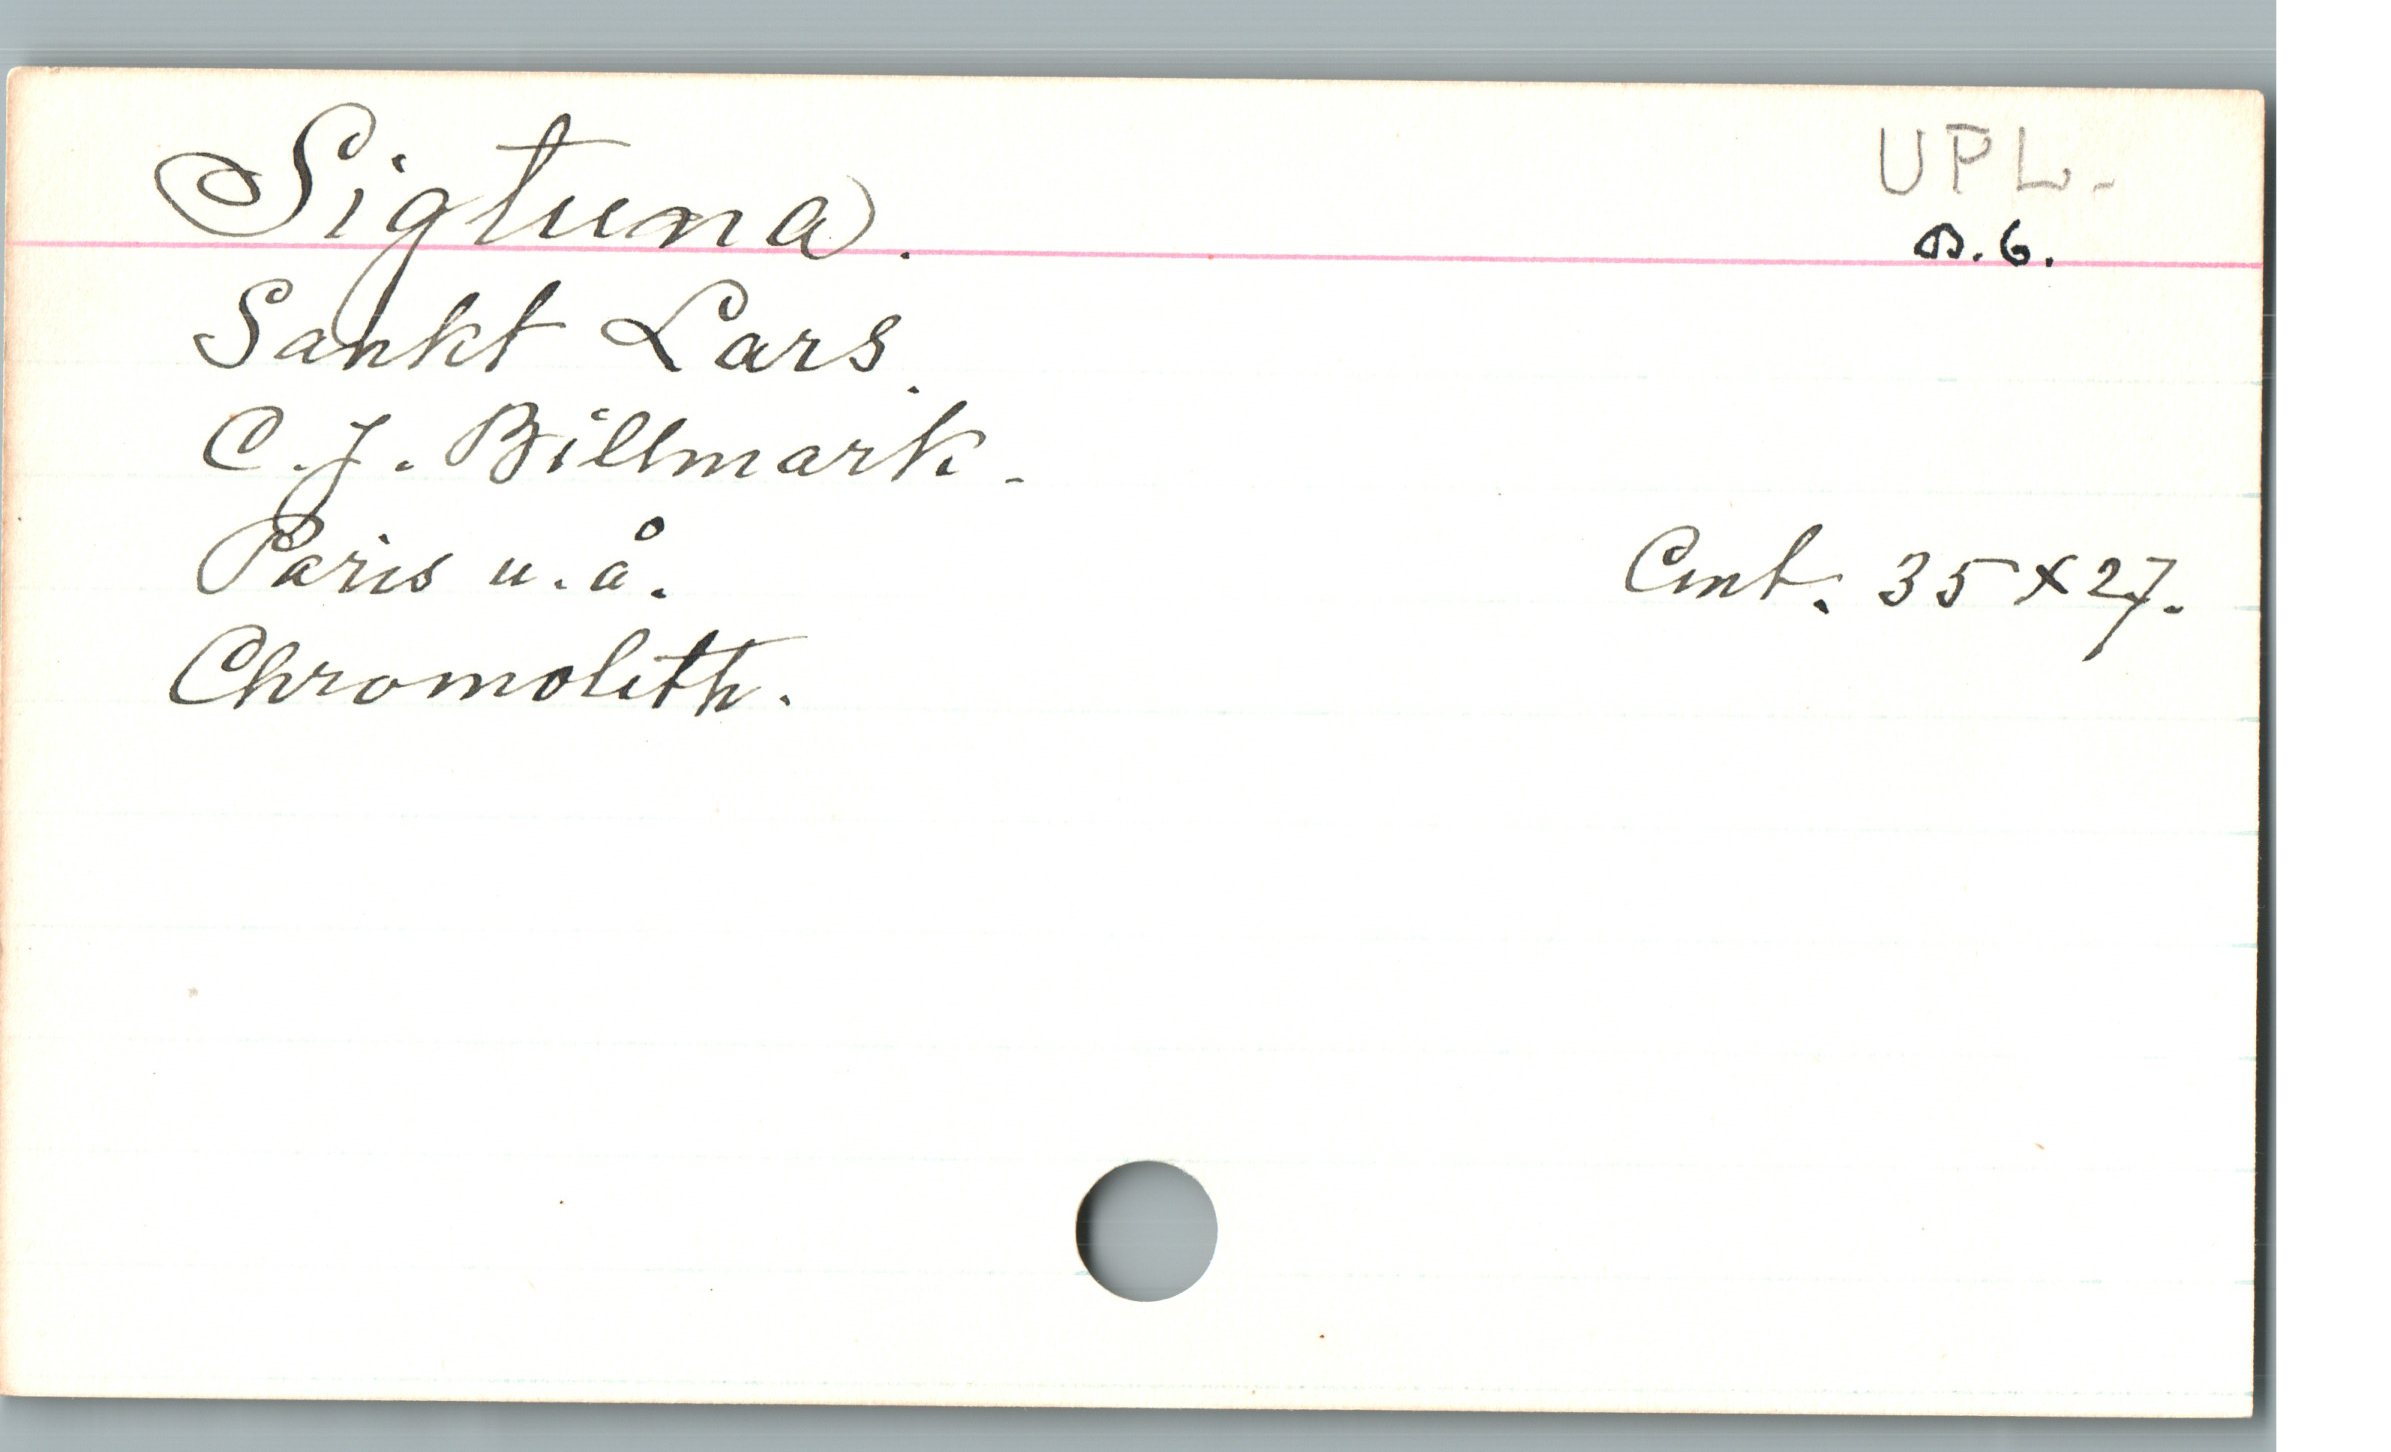 Sigtuna.
UPL.
B.6.
Sankt Lars.
C.J. Billmark.
Paris u.å.
Cmt. 35 x 27.
Chromolith.